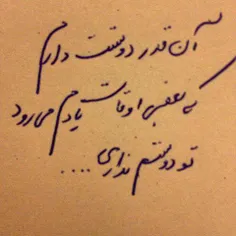 آن قدر دوستت دارم
که بعضی اوقات یادم می رود
تو دوستم نداری ....